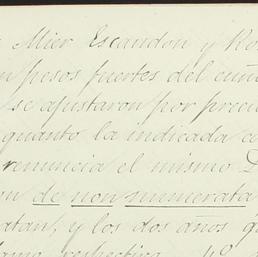 Mier Escandon y Ro
pesos fuertes del cuñ
se ajustaron por preci
quanto la indicada c
renuncia el mismo D
de non numerata
y los dos años q
respectiva